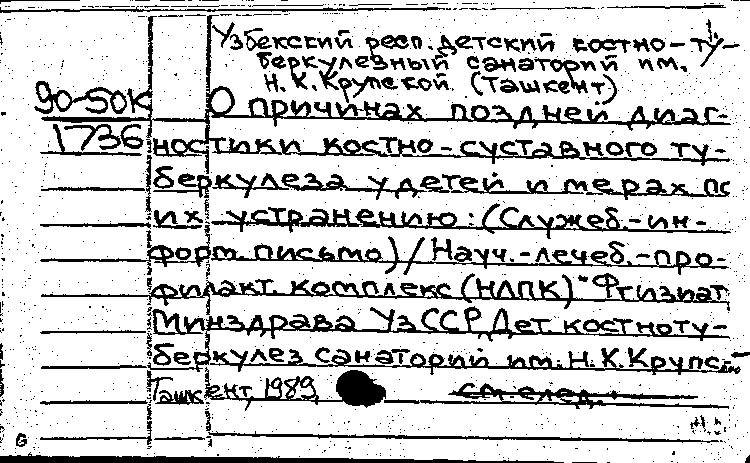 Узбекский респ. детский костно-ту-
беркулезный санаторий им.
Н. К. Крупской. (Ташкент)
90-50К О причинах поздней диаг-
1736 ностики костно-суставного ту-
беркулеза у детей и мерах по
их устранению: (Служеб.-ин-
форм. письмо) / Науч.-лечеб.-про-
филакт. комплекс (НЛПК) "Фтизиат
Минздрава УзССР, Дет. костноту-
беркулез. санаторий им. Н. К. Крупской
Ташкент, 1989.
см. след.